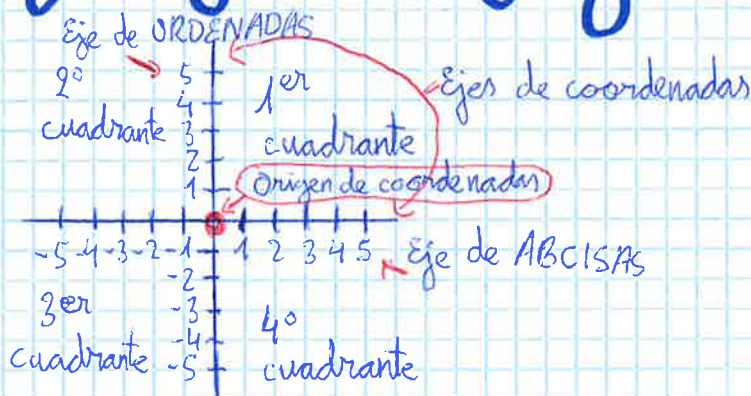 Eje de ORDENADAS
2º
cuadrante
1er
cuadrante
Ejes de coordenadas
Origen de coordenadas
5
4
3
2
1
-5 -4 -3 -2 -1 1 2 3 4 5
Eje de ABCISAS
-2
-3
-4
-5
3er
cuadrante
4º
cuadrante